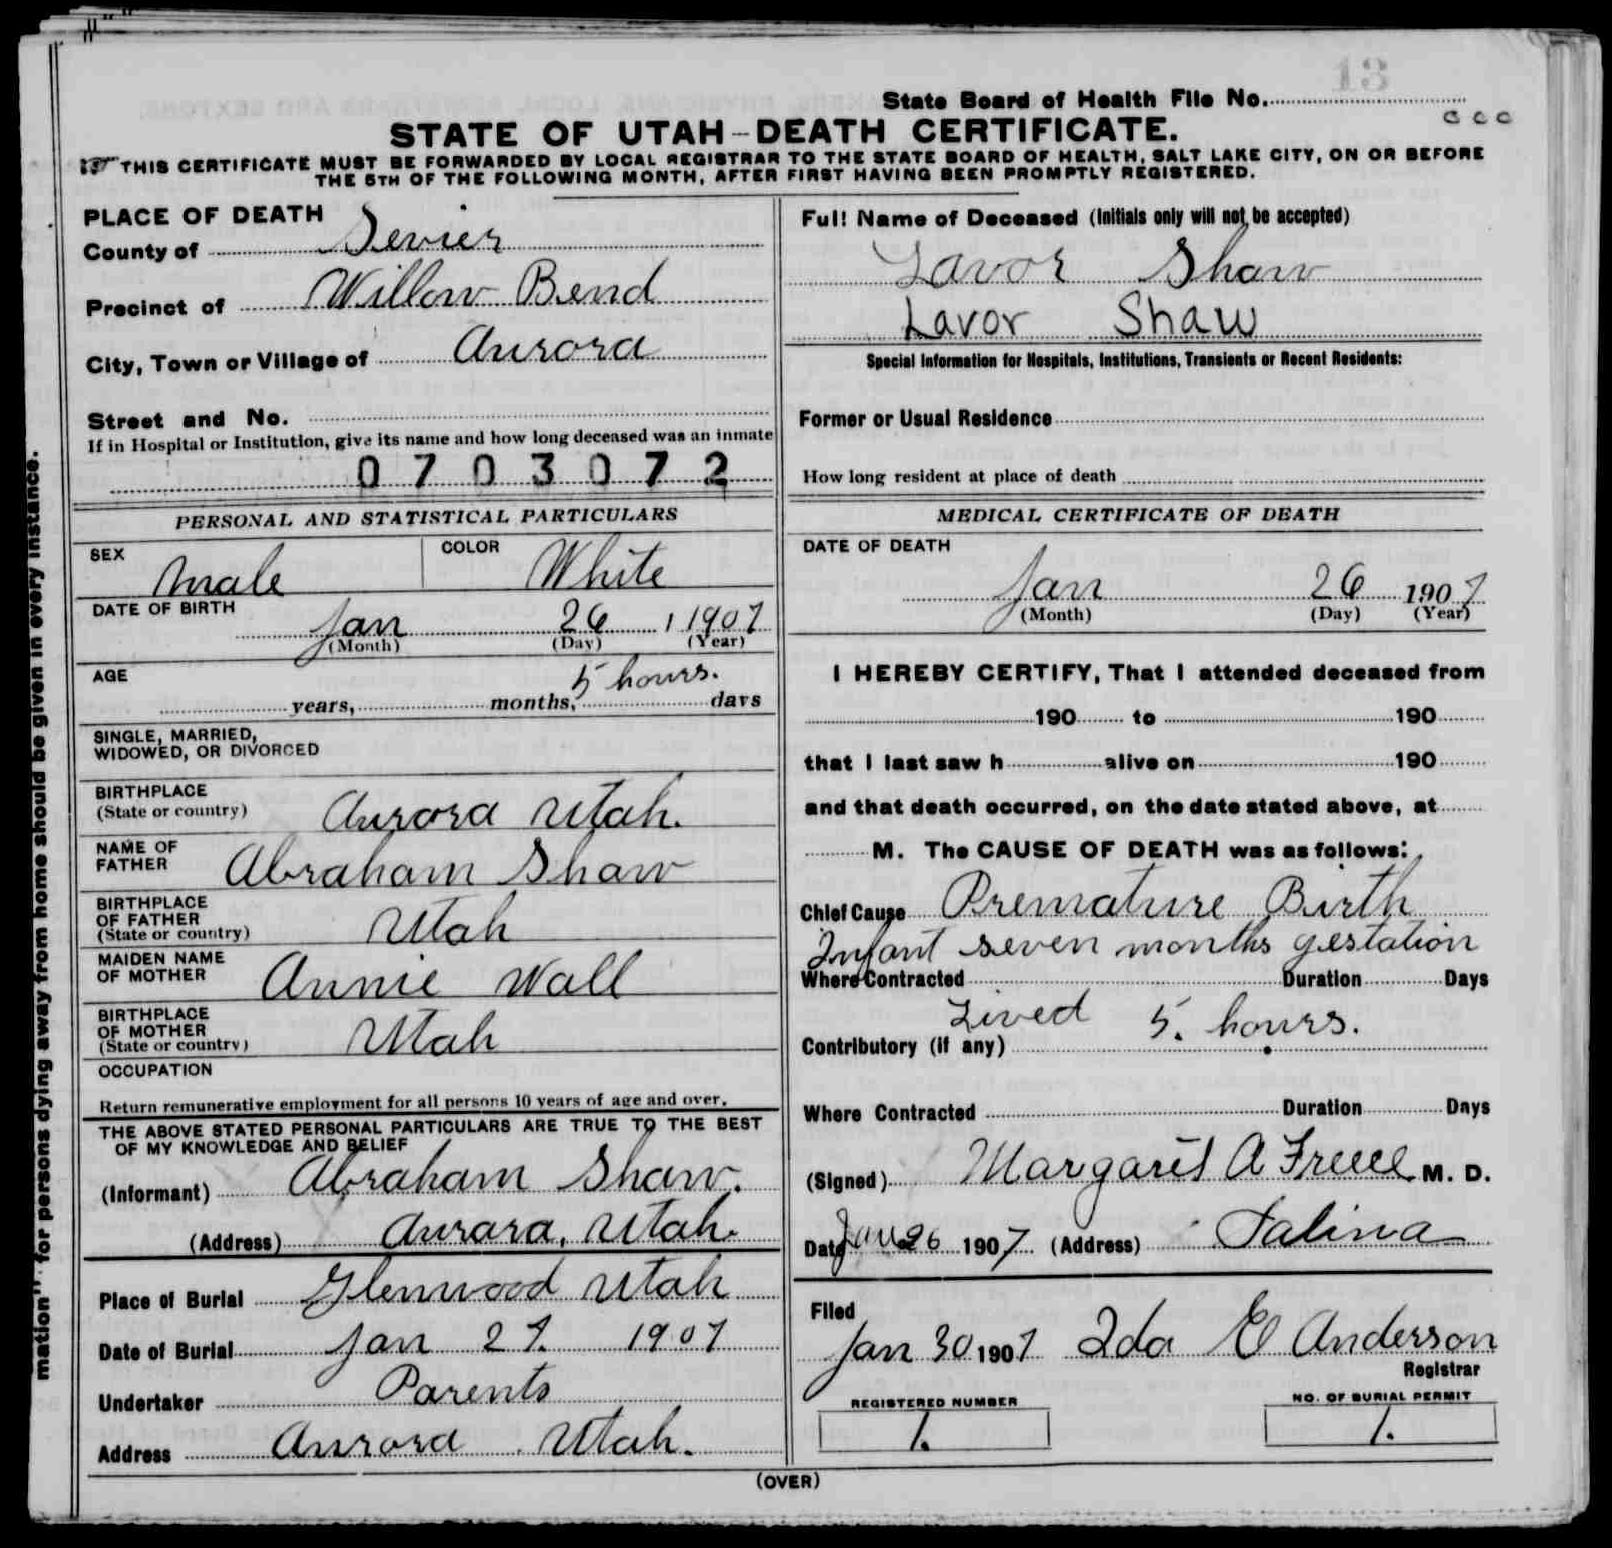 13
State Board of Health File No.
STATE OF UTAH—DEATH CERTIFICATE.
THIS CERTIFICATE MUST BE FORWARDED BY LOCAL REGISTRAR TO THE STATE BOARD OF HEALTH, SALT LAKE CITY, ON OR BEFORE
THE 5TH OF THE FOLLOWING MONTH, AFTER FIRST HAVING BEEN PROMPTLY REGISTERED.
PLACE OF DEATH
County of Sevier
Precinct of Willow Bend
City, Town or Village of Aurora
Street and No.
If in Hospital or Institution, give its name and how long deceased was an inmate
0703072
PERSONAL AND STATISTICAL PARTICULARS
SEX male COLOR White
DATE OF BIRTH
Jan 26 1 1907
(Month) (Day) (Year)
AGE 5 hours.
years, months, days
SINGLE, MARRIED,
WIDOWED, OR DIVORCED
BIRTHPLACE
(State or country) Aurora Utah.
NAME OF
FATHER Abraham Shaw
BIRTHPLACE
OF FATHER
(State or country) Utah
MAIDEN NAME
OF MOTHER Annie Wall
BIRTHPLACE
OF MOTHER
(State or country) Utah
OCCUPATION
Return remunerative employment for all persons 10 years of age and over.
THE ABOVE STATED PERSONAL PARTICULARS ARE TRUE TO THE BEST
OF MY KNOWLEDGE AND BELIEF
(Informant) Abraham Shaw.
(Address) Aurora, Utah.
Place of Burial Glenwood Utah
Date of Burial Jan 27. 1907
Undertaker Parents
Address Aurora Utah.
Full Name of Deceased (Initials only will not be accepted)
Lavor Shaw
Lavor Shaw
Special Information for Hospitals, Institutions, Transients or Recent Residents:
Former or Usual Residence
How long resident at place of death
MEDICAL CERTIFICATE OF DEATH
DATE OF DEATH
Jan 26 1907
(Month) (Day) (Year)
I HEREBY CERTIFY, That I attended deceased from
190 to 190
that I last saw h alive on 190
and that death occurred, on the date stated above, at
M. The CAUSE OF DEATH was as follows:
Chief Cause Premature Birth
Infant seven months gestation
Where Contracted Duration Days
Lived 5. hours.
Contributory (if any)
Where Contracted Duration Days
(Signed) Margaret A M. D.
Date Jan 26 1907 (Address) Salina
Filed
Jan 30 1907 Ida E Anderson
Registrar
REGISTERED NUMBER NO. OF BURIAL PERMIT
1. 1.
(OVER)
mation" for persons dying away from home should be given in every instance.